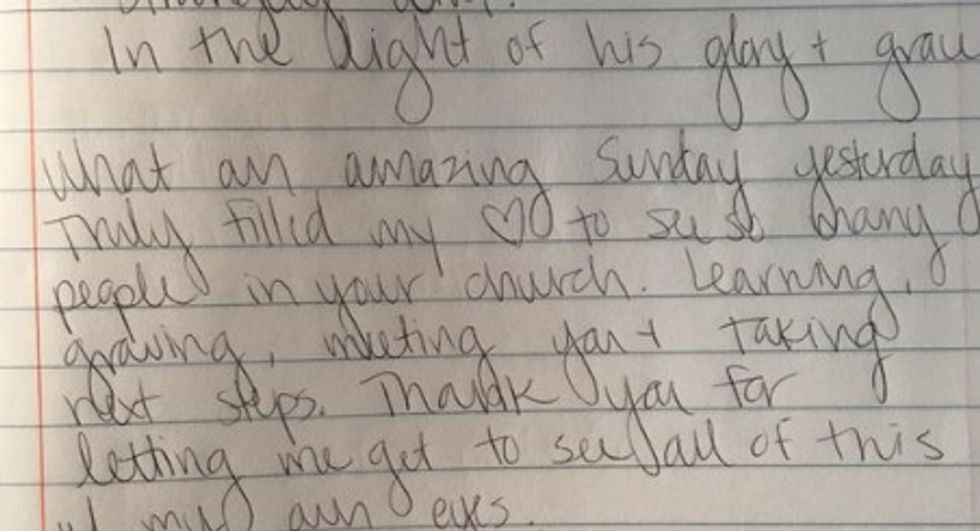 In the light of his glory + grace
What an amazing Sunday yesterday
Truly filled my ♡ to see so many
people in your church. Learning,
growing, meeting you + taking
next steps. Thank you for
letting me get to see all of this
w/ my own eyes.